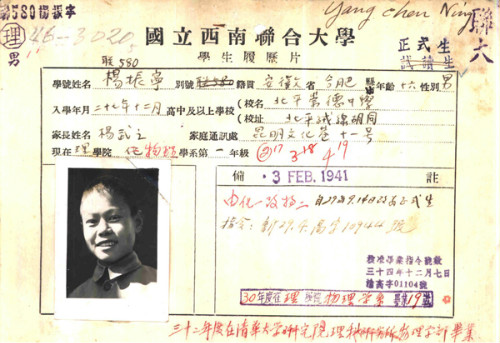 第580楊振寧
Yang Chen Ning
理 A6-3020
男
聯六
國立西南聯合大學
學生履歷片
正式生
試讀生
聯580
學號姓名 楊振寧 別號 籍貫 安徽 省 合肥 縣市 年齡 十六 性別 男
入學年月 二十七年十二月 高中及以上學校 校名 北平崇德中學
校址 北平絨線胡同
家長姓名 楊武之 家庭通訊處 昆明文化巷十一号
現在 理 學院 化 物理 學系第 一 年級 17 3-18 4 19
備 3 FEB. 1941 註
由化一改物二 自29年9月16日改為正式生
指令
核准畢業指令號數
三十四年十二月七日
渝高字01104號
30年度在理學院物理學系畢業19號
三十二年度在清華大學研究院理科研究所物理學部畢業